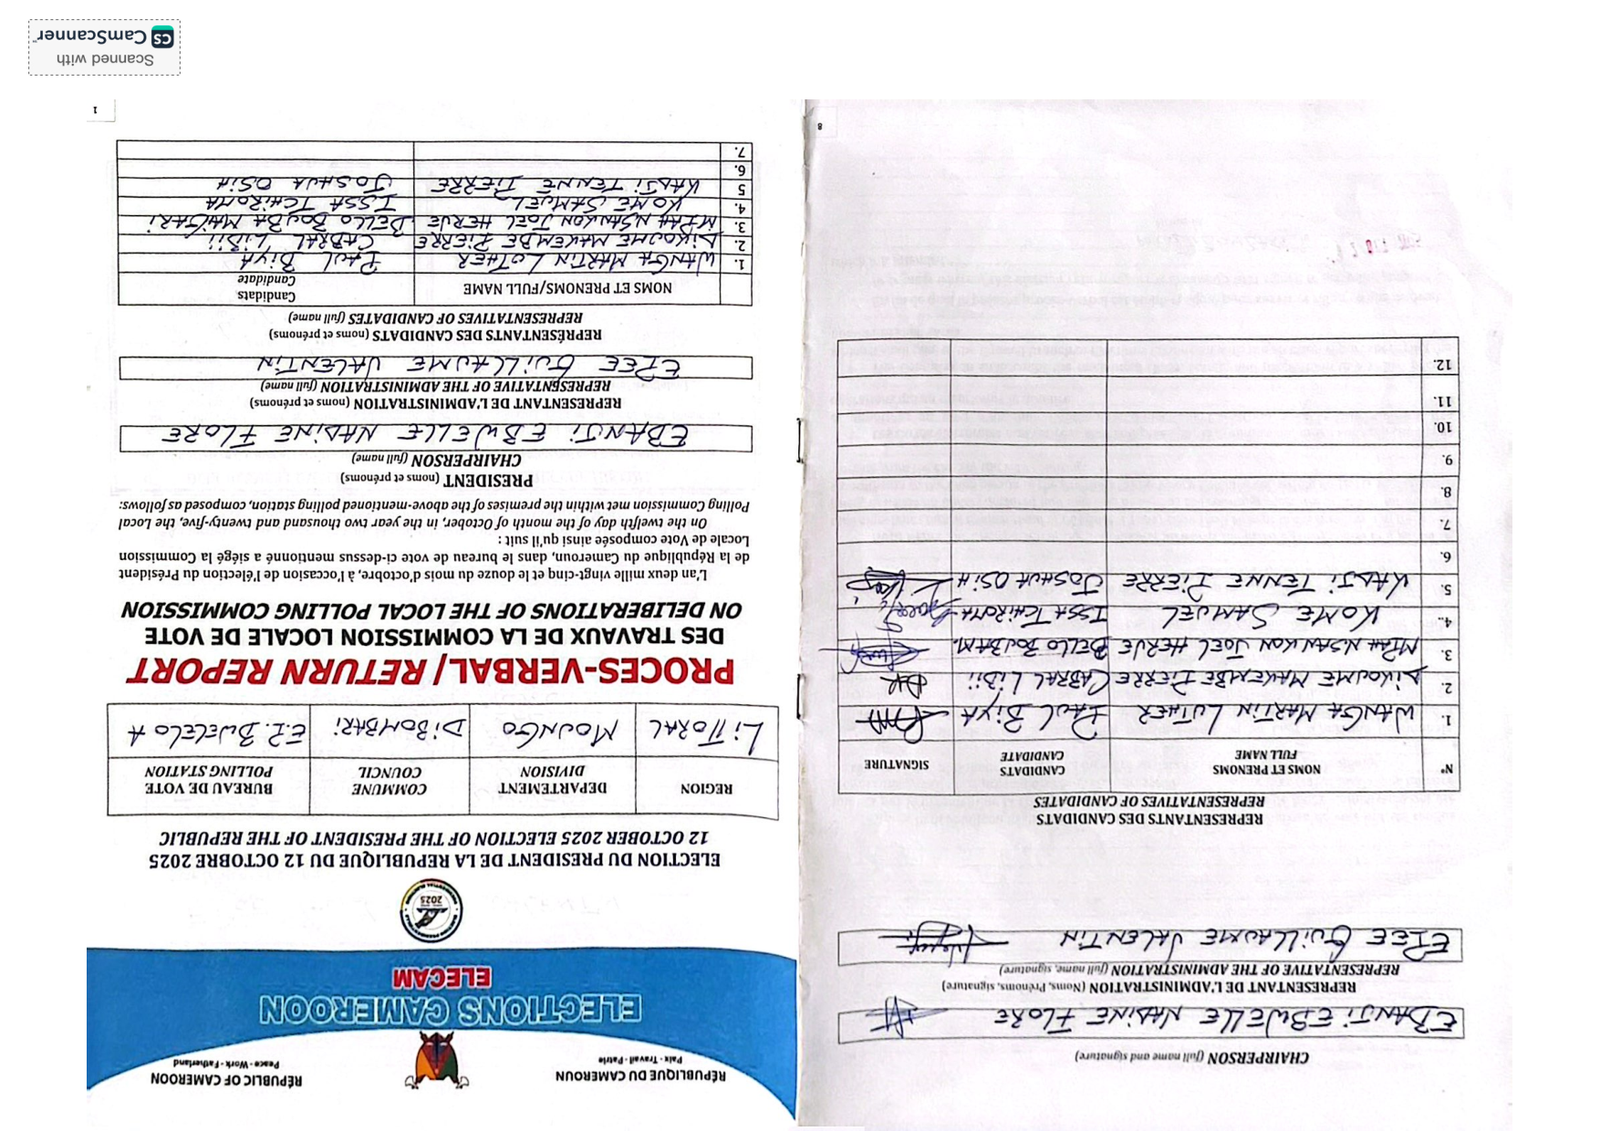 RÉPUBLIQUE DU CAMEROUN
Paix - Travail - Patrie
RÉPUBLIC OF CAMEROON
Peace - Work - Fatherland
ELECTIONS CAMEROON
ELECAM
2025
ELECTION DU PRESIDENT DE LA REPUBLIQUE DU 12 OCTOBRE 2025
12 OCTOBER 2025 ELECTION OF THE PRESIDENT OF THE REPUBLIC
REGION DEPARTEMENT DIVISION COMMUNE COUNCIL BUREAU DE VOTE POLLING STATION
LITTORAL MOUNGO DIBOMBARI E.P BWELELO A
PROCES-VERBAL/ RETURN REPORT
DES TRAVAUX DE LA COMMISSION LOCALE DE VOTE
ON DELIBERATIONS OF THE LOCAL POLLING COMMISSION
L'an deux mille vingt-cinq et le douze du mois d'octobre, à l'occasion de l'élection du Président
de la République du Cameroun, dans le bureau de vote ci-dessus mentionné a siégé la Commission
Locale de Vote composée ainsi qu'il suit :
On the twelfth day of the month of October, in the year two thousand and twenty-five, the Local
Polling Commission met within the premises of the above-mentioned polling station, composed as follows:
PRESIDENT (noms et prénoms)
CHAIRPERSON (full name)
EBANJI EBWELLE NADINE FLORE
REPRESENTANT DE L'ADMINISTRATION (noms et prénoms)
REPRESENTATIVE OF THE ADMINISTRATION (full name)
EPEE GUILLAUME VALENTIN
REPRÉSENTANTS DES CANDIDATS (noms et prénoms)
REPRESENTATIVES OF CANDIDATES (full name)
NOMS ET PRENOMS/FULL NAME Candidats Candidate
1. WANGA MARTIN LUTHER PAUL BIYA
2. DIKOUME MAKEMBE PIERRE CABRAL LIBII
3. MPAH NSANKON JOEL HERVE BELLO BOUBA MAIGARI
4. KOME SAMUEL ISSA TCHIROMA
5 KADJI TENNE PIERRE JOSHUA OSIH
6.
7.
1
CHAIRPERSON (full name and signature)
EBANJI EBWELLE NADINE FLORE
REPRESENTANT DE L'ADMINISTRATION (Noms, Prénoms, signature)
REPRESENTATIVE OF THE ADMINISTRATION (full name, signature)
EPEE GUILLAUME VALENTIN
REPRESENTANTS DES CANDIDATS
REPRESENTATIVES OF CANDIDATES
N° NOMS ET PRENOMS FULL NAME CANDIDATS CANDIDATE SIGNATURE
1. WANGA MARTIN LUTHER PAUL BIYA
2. DIKOUME MAKEMBE PIERRE CABRAL LIBII
3. MPAH NSANKON JOEL HERVE BELLO BOUBA M.
4. KOME SAMUEL ISSA TCHIROMA
5. KADJI TENNE PIERRE JOSHUA OSIH
6.
7.
8.
9.
10.
11.
12.
8
Scanned with
CS CamScanner